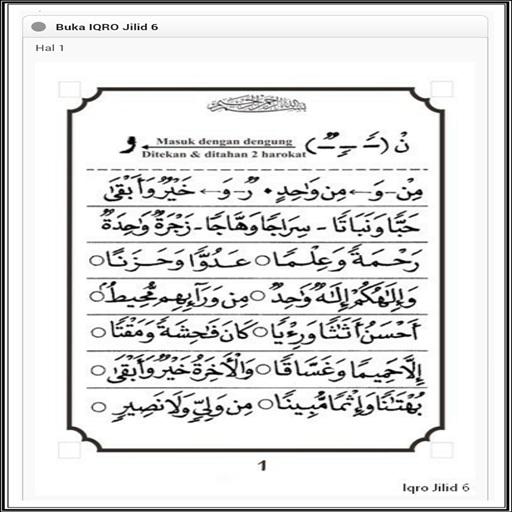 Buka IQRO Jilid 6
Hal 1
بسم الله الرحمن الرحيم
نْ (ـًـ ـٍـ ـٌـ) Masuk dengan dengung و
Ditekan & ditahan 2 harokat
مِنْ - وَ ← مِن وَٰحِدٍ • رٌ - وَ ← خَيْرٌ وَأَبْقَىٰ
حَبًّا وَنَبَاتًا - سِرَاجًا وَهَّاجًا - زَجْرَةٌ وَٰحِدَةٌ
رَحْمَةً وَعِلْمًا ○ عَدُوًّا وَحَزَنًا ○
وَإِلَٰهُكُمْ إِلَٰهٌ وَٰحِدٌ ○ مِن وَرَآئِهِم مُّحِيطٌ ○
أَحْسَنُ أَثَٰثًا وَرِءْيًا ○ كَانَ فَٰحِشَةً وَمَقْتًا ○
إِلَّا حَمِيمًا وَغَسَّاقًا ○ وَالْأَخِرَةُ خَيْرٌ وَأَبْقَىٰ ○
بُهْتَٰنًا وَإِثْمًا مُّبِينًا ○ مِن وَلِيٍّ وَلَا نَصِيرٍ ○
1
Iqro Jilid 6